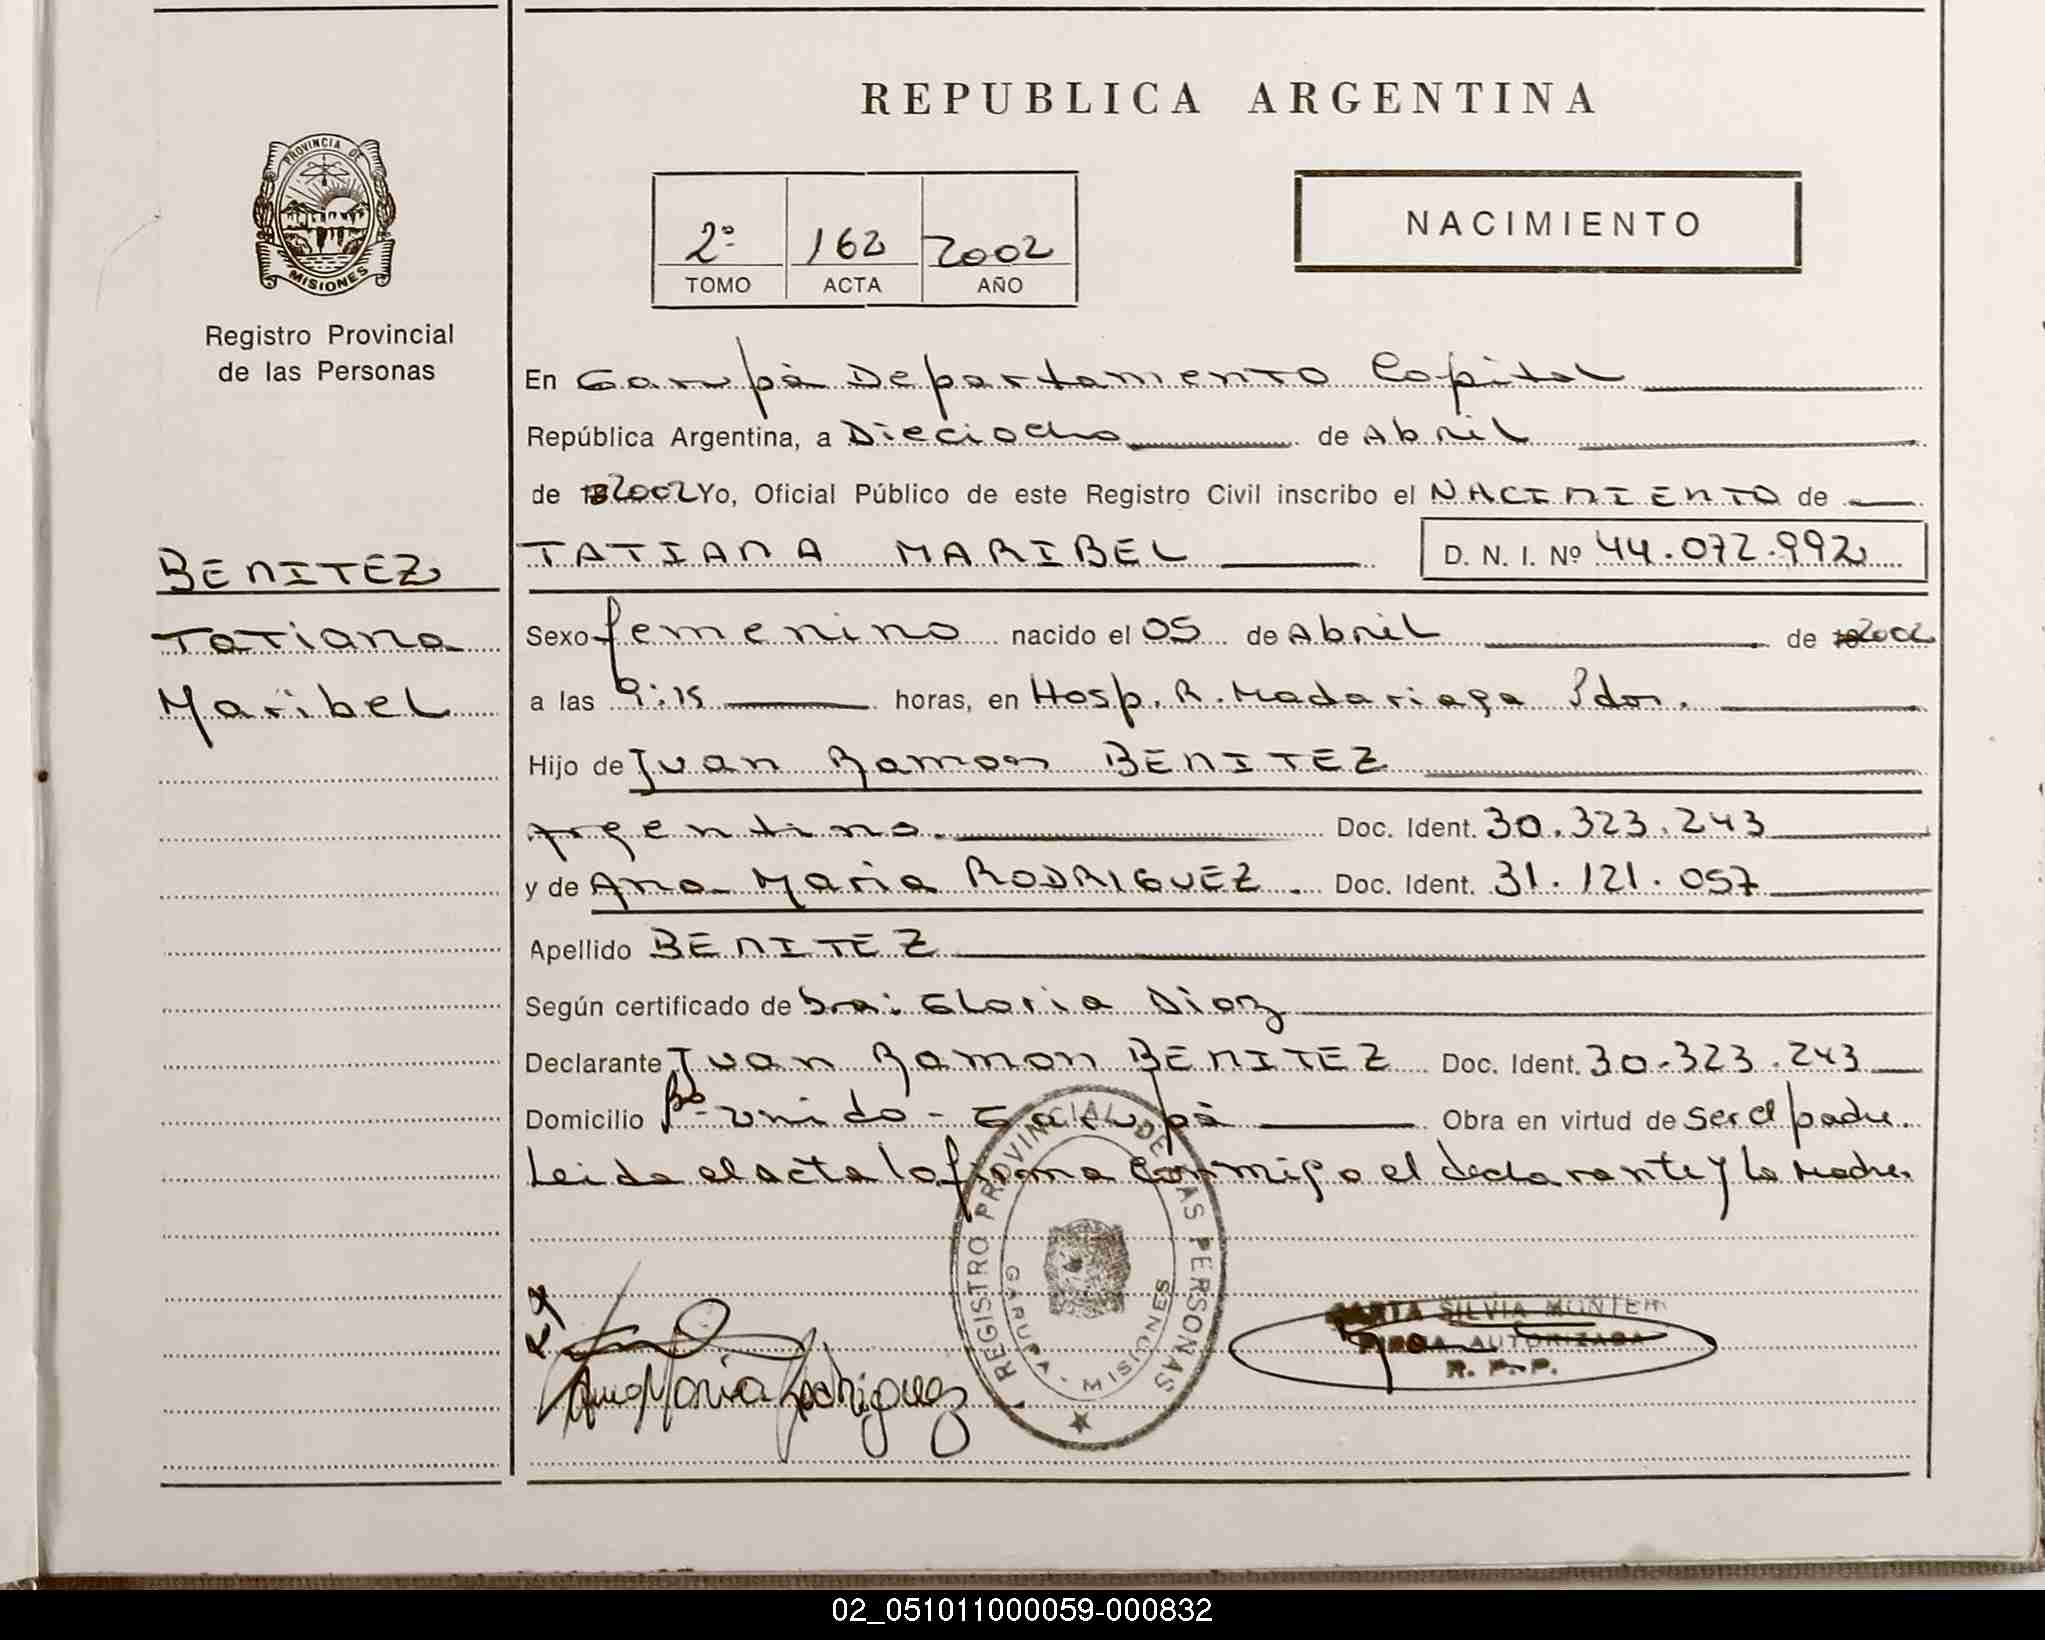 REPUBLICA ARGENTINA
PROVINCIA DE
MISIONES
Registro Provincial
de las Personas
2º 162 2002
TOMO ACTA AÑO
NACIMIENTO
En Garupá Departamento Capital
República Argentina, a Dieciocho de Abril
de 2002 Yo, Oficial Público de este Registro Civil inscribo el NACIMIENTO de
BENITEZ
Tatiana
Maribel
TATIANA MARIBEL D. N. I. Nº 44.072.992
Sexo femenino nacido el 05 de Abril de 2002
a las 9:15 horas, en Hosp. R. Madariaga Pdas.
Hijo de Juan Ramon BENITEZ
Argentino. Doc. Ident. 30.323.243
y de Ana Maria RODRIGUEZ. Doc. Ident. 31.121.057
Apellido BENITEZ
Según certificado de Dra: Gloria Diaz
Declarante Juan Ramon BENITEZ Doc. Ident. 30.323.243
Domicilio Bº Unido - Garupá Obra en virtud de ser el padre.
Leida el acta la firma conmigo el declarante y la Madre.
REGISTRO PROVINCIAL DE LAS PERSONAS
GARUPA - MISIONES
Ana Maria Rodriguez
SILVIA
FIRMA AUTORIZADA
R. P. P.
02_051011000059-000832